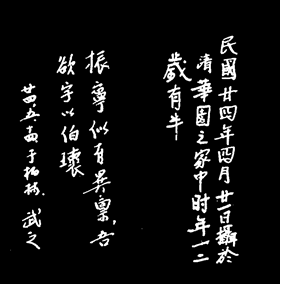 民國廿四年四月廿一日攝於
清華園之家中时年十二
歲有半
振寧似有異稟,吾
欲字以伯瓌
廿四.五. 于柏林. 武之